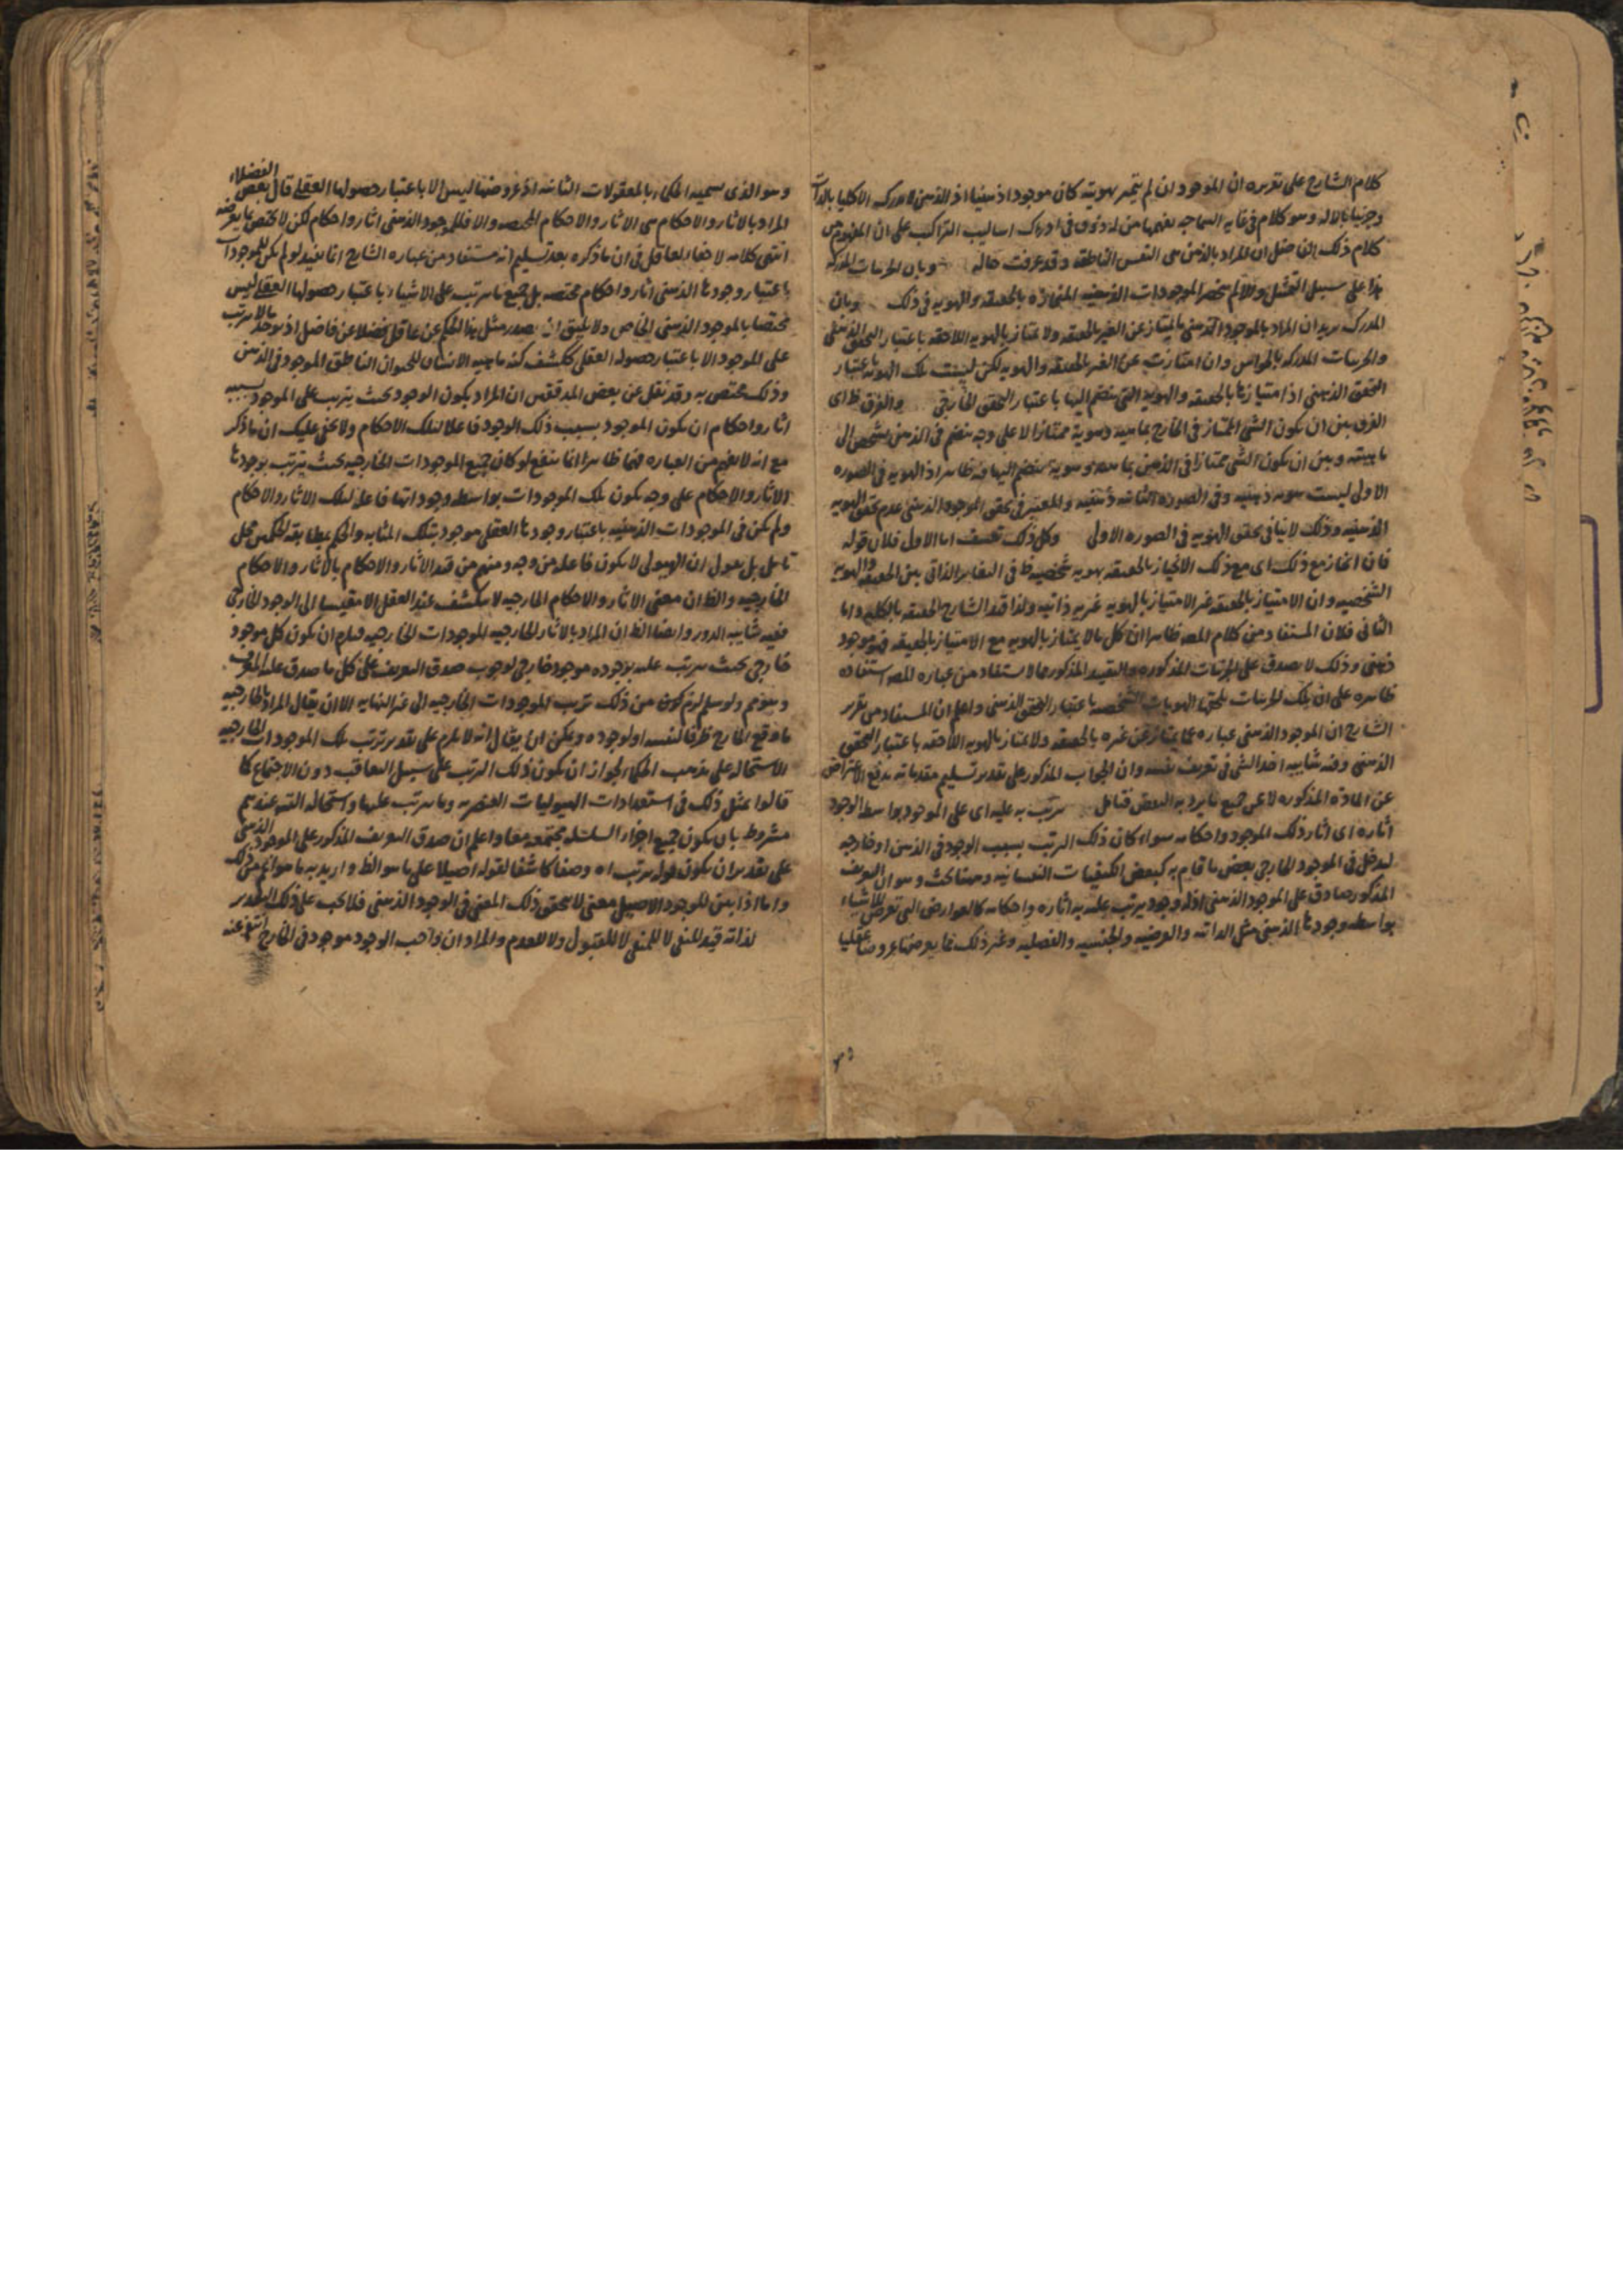 كلام الشارح على تقريره ان الموجود ان لم يتميز بهويته كان موجودا ذهنيا اذ الذهن لا يدرك الا كليا بالذات
وجزئيا بالاله وهو كلام في غايه السماجه يفهمها من له ذوق في ادراك اساليب التراكيب على ان المفهوم من
كلام ذلك الفاضل ان المراد بالذهن هي النفس الناطقه وقد عرفت حاله وبان الجزئيات المدركه
هذا على سبيل التمثيل والا لم ينحصر الموجودات الذهنيه المنحازه بالحقيقه والهويه في ذلك وبان
المدرك يريد ان المراد بالموجود الذهني ما يمتاز عن الغير بالحقيقه ولا يمتاز بالهويه اللاحقه باعتبار التحقق الذهني
والجزئيات المدركه بالحواس وان امتازت عن الغير بالحقيقه والهويه لكن ليست تلك الهويه باعتبار
التحقق الذهني اذ امتيازها بالحقيقه والهويه التي تنضم اليها باعتبار التحقق الخارجي والفرق ظ اى
الفرق بين ان يكون الشي الممتاز في الخارج بماهيه وهوية ممتازا لا على وجه ينضم في الذهن تشخص الى
ماهيته وبين ان يكون الشي ممتازا في الذهن بماهيه وهوية ينضم اليها فيه ظاهر اذ الهويه في الصوره
الاولى ليست هويه ذهنيه وفى الصوره الثانيه ذهنيه والمعتبر في تحقق الموجود الذهني عدم تحقق الهويه
الذهنيه وذلك لا ينافى تحقق الهويه في الصوره الاولى وكل ذلك تعسف اما الاول فلان قوله
فان انحاز مع ذلك اى مع ذلك الانحياز بالحقيقه بهويه شخصيه ظ في التغاير الذاتى بين الحقيقه والهويه
الشخصيه وان الامتياز بالحقيقه غير الامتياز بالهويه غيريه ذاتيه ولذا قيد الشارح الحقيقه بالكليه واما
الثانى فلان المستفاد من كلام المص ظاهرا ان كل ما لا يمتاز بالهويه مع الامتياز بالحقيقه فهو موجود
ذهني وذلك لا يصدق على الجزئيات المذكوره والتقييد المذكور مما لا يستفاد من عباره المص استفاده
ظاهره على ان تلك الجزئيات تلحقها الهويات الشخصيه باعتبار التحقق الذهني واعلم ان المستفاد من تقرير
الشارح ان الموجود الذهني عباره عما يمتاز عن غيره بالحقيقه ولا يمتاز بالهويه اللاحقه باعتبار التحقق
الذهني وفيه شايبه اخذ الشي في تعريف نفسه وان الجواب المذكور على تقدير تسليم مقدماته يدفع الاعتراض
عن الماده المذكوره لا عن جميع ما يرد به النقض فتامل يترتب به عليه اى على الموجود بواسطه الوجود
اثاره اى اثار ذلك الموجود واحكامه سواء كان ذلك الترتب بسبب الوجود في الذهن او خارجه
ليدخل في الموجود الخارجي بعض ما قام به كبعض الكيفيات النفسانيه وههنا بحث وهو ان التعريف
المذكور صادق على الموجود الذهني اذ له وجود يترتب عليه به اثاره واحكامه كالعوارض التي تعرض للاشياء
بواسطه وجودها الذهني مثل الذاتيه والعرضيه والجنسيه والفصليه وغير ذلك مما يعرضها عروضا عقليا
وهو الذى يسميه الحكماء بالمعقولات الثانيه اذ عروضها ليس الا باعتبار حصولها العقلى قال بعض الفضلاء
المراد بالاثار والاحكام هى الاثار والاحكام المختصه والا فللموجود الذهني اثار واحكام لكن لا تختص بما يعرضه
انتهى كلامه لا خفاء لعاقل في ان ما ذكره بعد تسليم انه مستفاد من عباره الشارح انما يفيد لو لم يكن للموجودات
باعتبار وجودها الذهني اثار واحكام مختصه بل جميع ما يترتب على الاشياء باعتبار حصولها العقلى ليس
مختصا بالموجود الذهني الخاص ولا يليق ان يصدر مثل هذا الحكم عن عاقل فضلا عن فاضل اذ يوجد ما لا يترتب
على الموجود الا باعتبار حصوله العقلى ككشف كنه ماهيه الانسان للحيوان الناطق الموجود في الذهن
وذلك مختص به وقد نقل عن بعض المدققين ان المراد بكون الوجود بحيث يترتب على الموجود بسببه
اثار واحكام ان يكون الموجود بسبب ذلك الوجود فاعلا لتلك الاحكام ولا يخفى عليك ان ما ذكر
مع انه لا يفهم من العباره فهما ظاهرا انما ينفع لو كان جميع الموجودات الخارجيه بحيث يترتب بوجودها
الاثار والاحكام على وجه يكون تلك الموجودات بواسطه وجوداتها فاعله لتلك الاثار والاحكام
ولم يكن في الموجودات الذهنيه باعتبار وجودها العقلى موجود بتلك المثابه والحكم بمطابقه الحكمين محل
تامل بل نقول ان الهيولى لا يكون فاعله من وجه ومنهم من قيد الاثار والاحكام بالاثار والاحكام
الخارجيه والظ ان معنى الاثار والاحكام الخارجيه لا ينكشف عند العقل الا مقيسا الى الوجود الخارجى
ففيه شايبه الدور وايضا الظ ان المراد بالاثار الخارجيه الموجودات الخارجيه فيلزم ان يكون كل موجود
خارجى بحيث يترتب عليه بوجوده موجود خارجى لوجوب صدق التعريف على كل ما صدق عليه المعرف
وهو مم ولو سلم لزم كون من ذلك ترتب الموجودات الخارجيه الى غير النهايه الا ان يقال المراد بالخارجيه
ما وقع الخارج ظرفا لنفسه او لوجوده ويمكن ان يقال انه لا يلزم على تقدير ترتب تلك الموجودات الخارجيه
الاستحاله على مذهب الحكماء لجواز ان يكون ذلك الترتب على سبيل التعاقب دون الاجتماع كما
قالوا بمثل ذلك في استعدادات الهيوليات العنصريه وما يترتب عليها واستحاله التس عندهم
مشروط بان يكون جميع اجزاء السلسله مجتمعه معا واعلم ان صدق التعريف المذكور على الموجود الذهني
على تقدير ان يكون قوله يترتب اه وصفا كاشفا لقوله اصيلا على ما هو الظ واريد به ما هو اعم من ذلك
واما اذا بين للوجود الاصيل معنى لا يتحقق ذلك المعنى في الوجود الذهني فلا يجب على ذلك التقدير
لذاته قيد للنفى لا للمنفى لا للقبول ولا للعدم والمراد ان واجب الوجود موجود في الخارج انتفى عنه